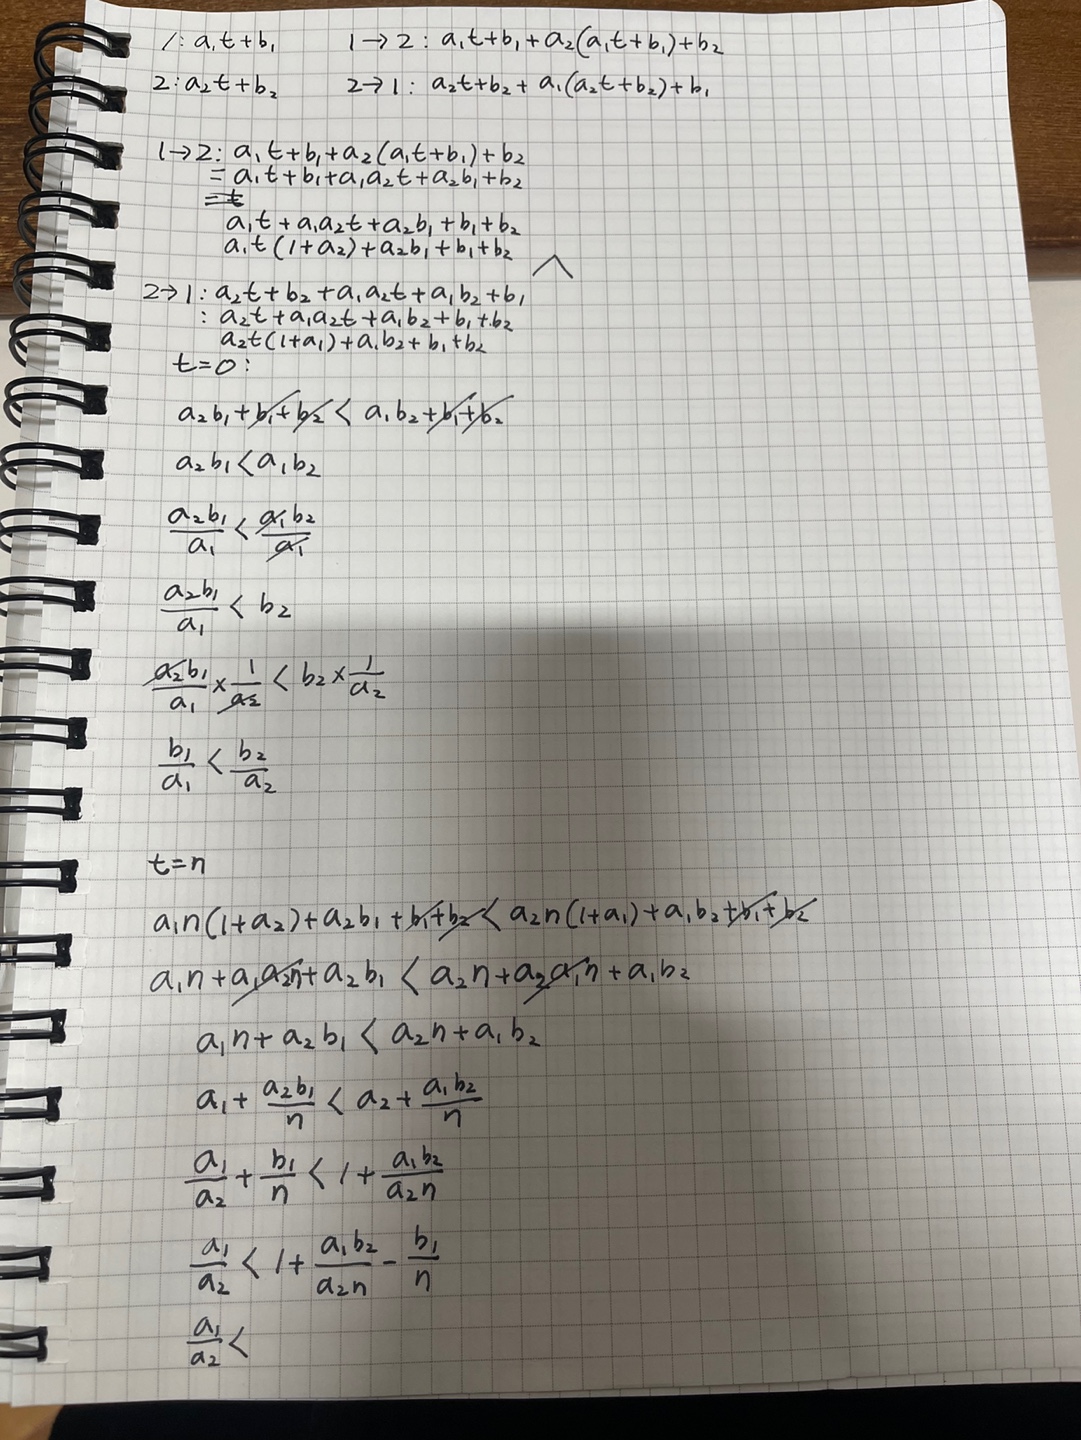 1: a₁t+b₁ 1→2: a₁t+b₁+a₂(a₁t+b₁)+b₂
2: a₂t+b₂ 2→1: a₂t+b₂+a₁(a₂t+b₂)+b₁
1→2: a₁t+b₁+a₂(a₁t+b₁)+b₂
= a₁t+b₁+a₁a₂t+a₂b₁+b₂
=t
a₁t+a₁a₂t+a₂b₁+b₁+b₂
a₁t(1+a₂)+a₂b₁+b₁+b₂
∧
2→1: a₂t+b₂+a₁a₂t+a₁b₂+b₁
: a₂t+a₁a₂t+a₁b₂+b₁+b₂
a₂t(1+a₁)+a₁b₂+b₁+b₂
t=0:
a₂b₁+b₁+b₂ < a₁b₂+b₁+b₂
a₂b₁ < a₁b₂
a₂b₁/a₁ < a₁b₂/a₁
a₂b₁/a₁ < b₂
a₂b₁/a₁ × 1/a₂ < b₂ × 1/a₂
b₁/a₁ < b₂/a₂
t=n
a₁n(1+a₂)+a₂b₁+b₁+b₂ < a₂n(1+a₁)+a₁b₂+b₁+b₂
a₁n+a₁a₂n+a₂b₁ < a₂n+a₂a₁n+a₁b₂
a₁n+a₂b₁ < a₂n+a₁b₂
a₁+a₂b₁/n < a₂+a₁b₂/n
a₁/a₂+b₁/n < 1+a₁b₂/a₂n
a₁/a₂ < 1+a₁b₂/a₂n-b₁/n
a₁/a₂ <